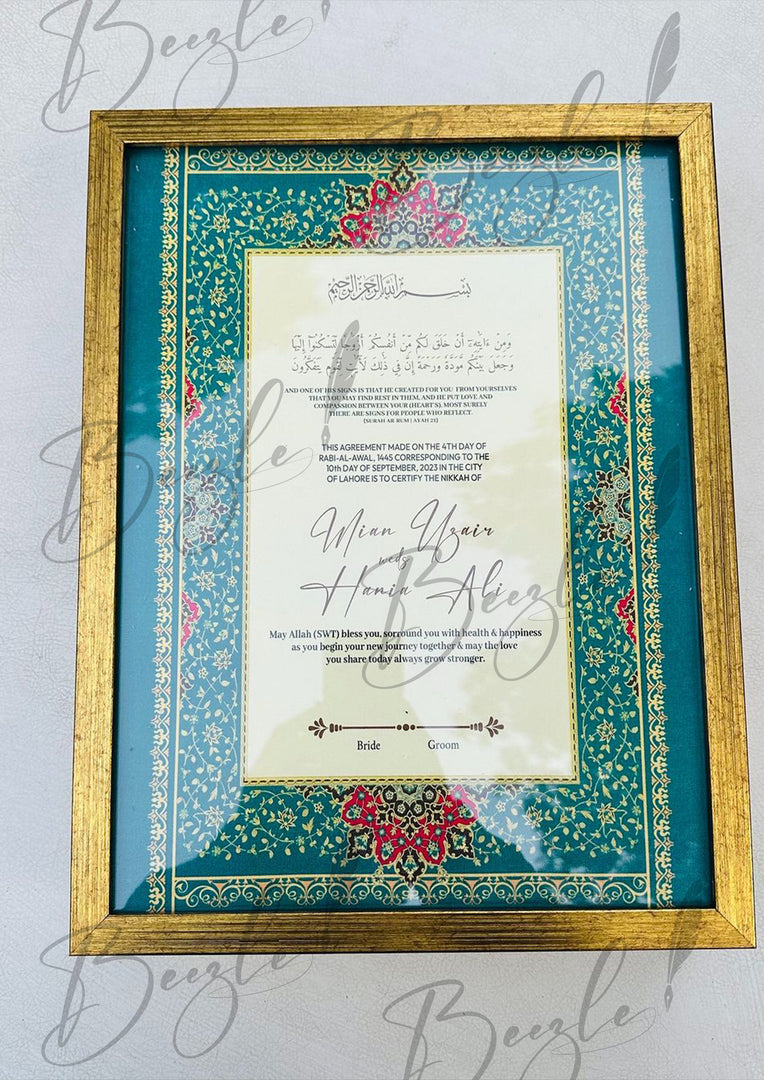 Beezle!
بسم الله الرحمن الرحيم
وَمِنْ ءَايَٰتِهِۦٓ أَنْ خَلَقَ لَكُم مِّنْ أَنفُسِكُمْ أَزْوَٰجًا لِّتَسْكُنُوٓا۟ إِلَيْهَا
وَجَعَلَ بَيْنَكُم مَّوَدَّةً وَرَحْمَةً إِنَّ فِى ذَٰلِكَ لَءَايَٰتٍ لِّقَوْمٍ يَتَفَكَّرُونَ
AND ONE OF HIS SIGNS IS THAT HE CREATED FOR YOU FROM YOURSELVES
THAT YOU MAY FIND REST IN THEM, AND HE PUT LOVE AND
COMPASSION BETWEEN YOUR (HEART'S). MOST SURELY
THERE ARE SIGNS FOR PEOPLE WHO REFLECT.
[SURAH AR-RUM | AYAH 21]
THIS AGREEMENT MADE ON THE 4TH DAY OF
RABI-AL-AWAL, 1445 CORRESPONDING TO THE
10th DAY OF SEPTEMBER, 2023 IN THE CITY
OF LAHORE IS TO CERTIFY THE NIKKAH OF
Mian Uzair
weds
Hania Ali
May Allah (SWT) bless you, sorround you with health & happiness
as you begin your new journey together & may the love
you share today always grow stronger.
Bride Groom
Beezle!
Beezle!
Beezle!
Beezle!
Beezle!